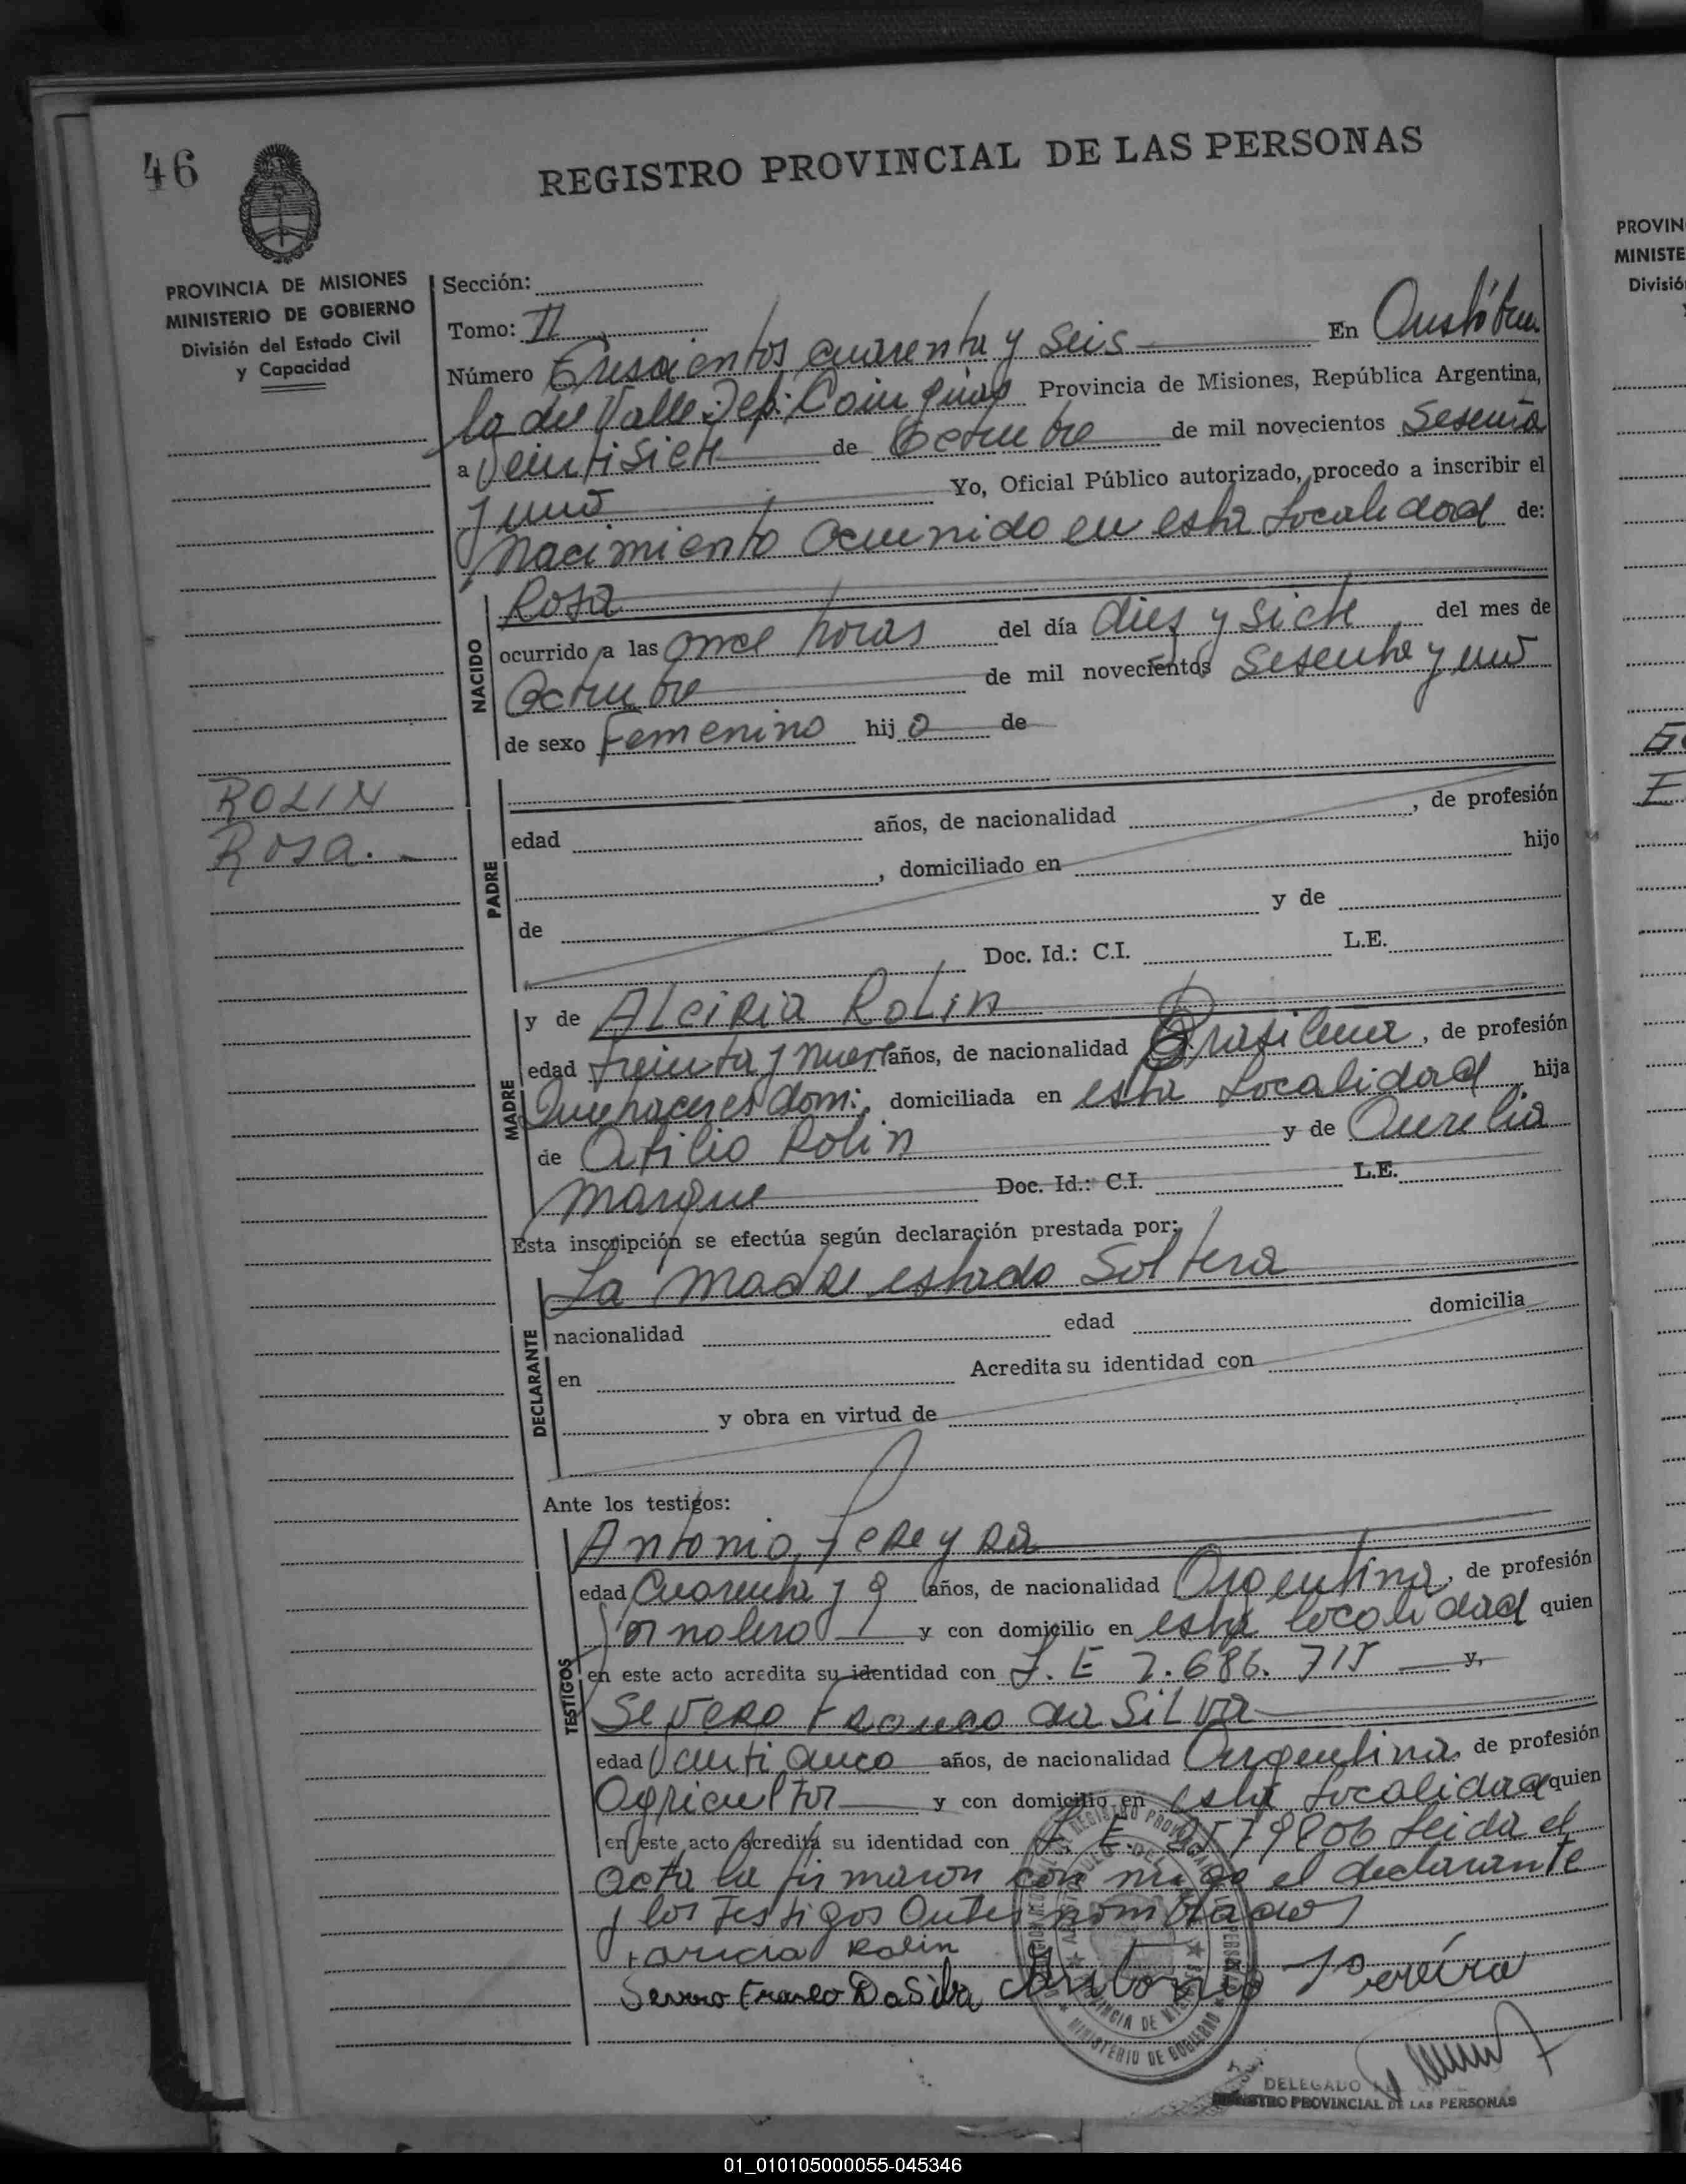 46
REGISTRO PROVINCIAL DE LAS PERSONAS
PROVINCIA DE MISIONES
MINISTERIO DE GOBIERNO
División del Estado Civil
y Capacidad
Sección:
Tomo: II
Número Trescientos cuarenta y seis En Aristóbu
lo del Valle Dep: Cainguás Provincia de Misiones, República Argentina,
a Veintisiete de Octubre de mil novecientos Sesenta
y uno Yo, Oficial Público autorizado, procedo a inscribir el
Nacimiento Ocurrido en esta Localidad de:
NACIDO
Rosa
ocurrido a las once horas del día diez y siete del mes de
Octubre de mil novecientos Sesenta y uno
de sexo Femenino hij a de
ROLIN
Rosa.-
PADRE
edad años, de nacionalidad , de profesión
, domiciliado en hijo
de y de
Doc. Id.: C.I. L.E.
MADRE
y de ALCIRIA ROLIN
edad treinta y nueve años, de nacionalidad Brasileña, de profesión
Quehaceres dom:, domiciliada en esta Localidad, hija
de Atilio Rolin y de Aurelia
Marque Doc. Id.: C.I. L.E.
Esta inscripción se efectúa según declaración prestada por:
DECLARANTE
La Madre estado Soltera
nacionalidad edad domicilia
en Acredita su identidad con
y obra en virtud de
Ante los testigos:
TESTIGOS
Antonio Pereyra
edad Cuarenta y 9 años, de nacionalidad Argentina, de profesión
Jornalero y con domicilio en esta localidad quien
en este acto acredita su identidad con L. E 7.686.715 y,
Severo Franco da Silva
edad Veinticinco años, de nacionalidad Argentina, de profesión
Agricultor y con domicilio en esta Localidad quien
en este acto acredita su identidad con L. E. Leida el
acta la firmaron con migo el declarante
y los testigos antes nombrados
Rolin
Severo Franco DaSilva Antonio Pereira
MINISTERIO DE GOBIERNO
DELEGADO
REGISTRO PROVINCIAL DE LAS PERSONAS
PROVIN
MINISTE
Divisió
01_010105000055-045346